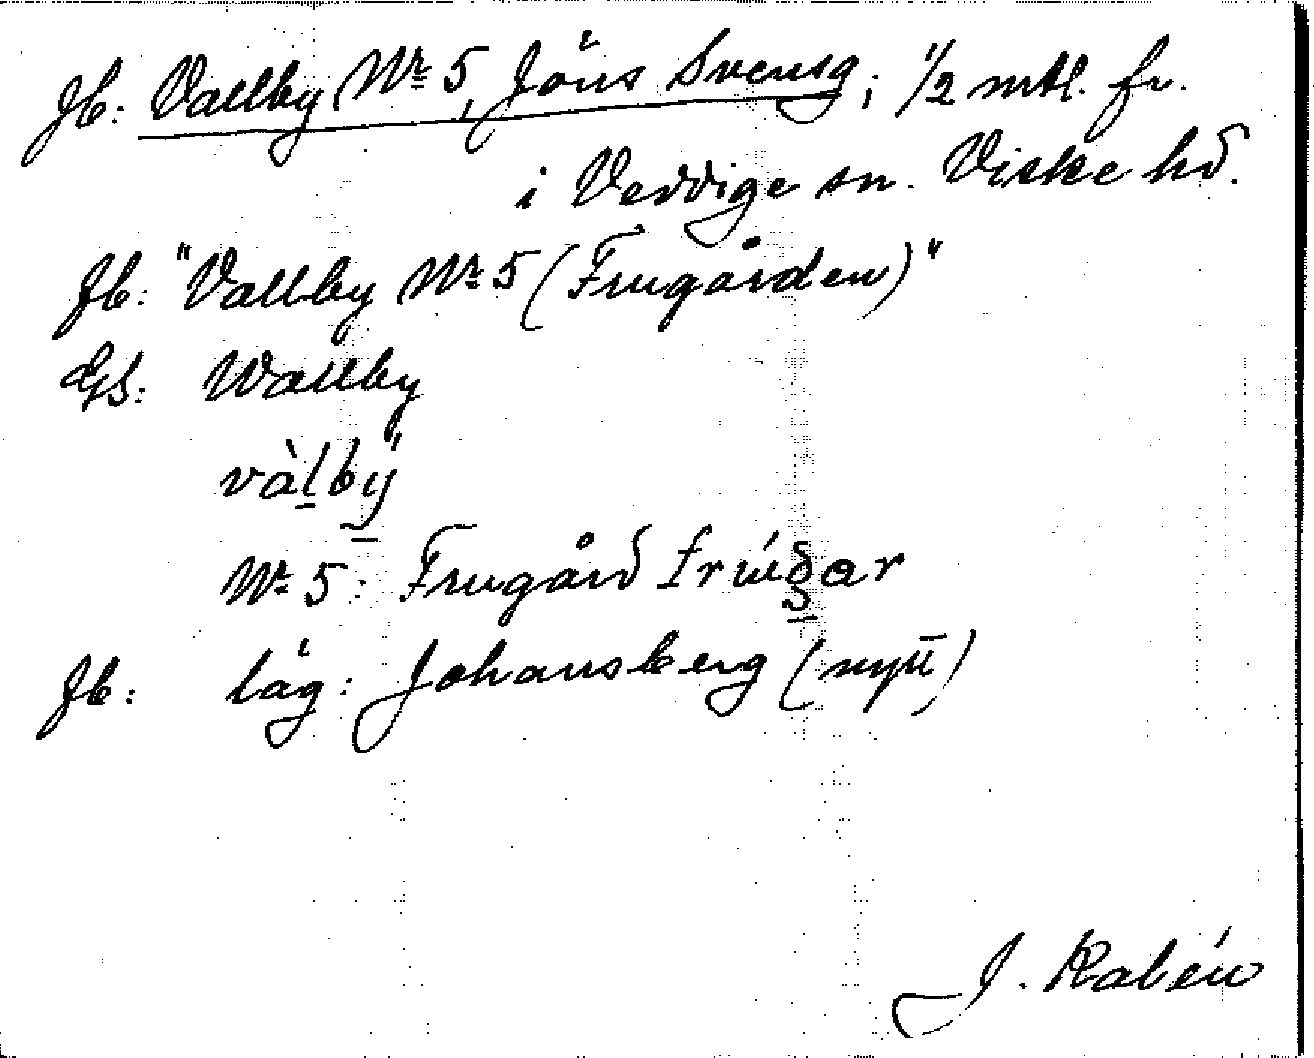 Jb: Vallby Nr 5, Jöns Svensg; 1/2 mtl. fr.
i Veddige sn. Viske hd.
Jb: "Vallby Nr 5 (Frugården)"
Gs: Wallby
vàlbÿ
Nr 5: Frugård
Jb: låg: Johansberg (nytt)
J. Kalén